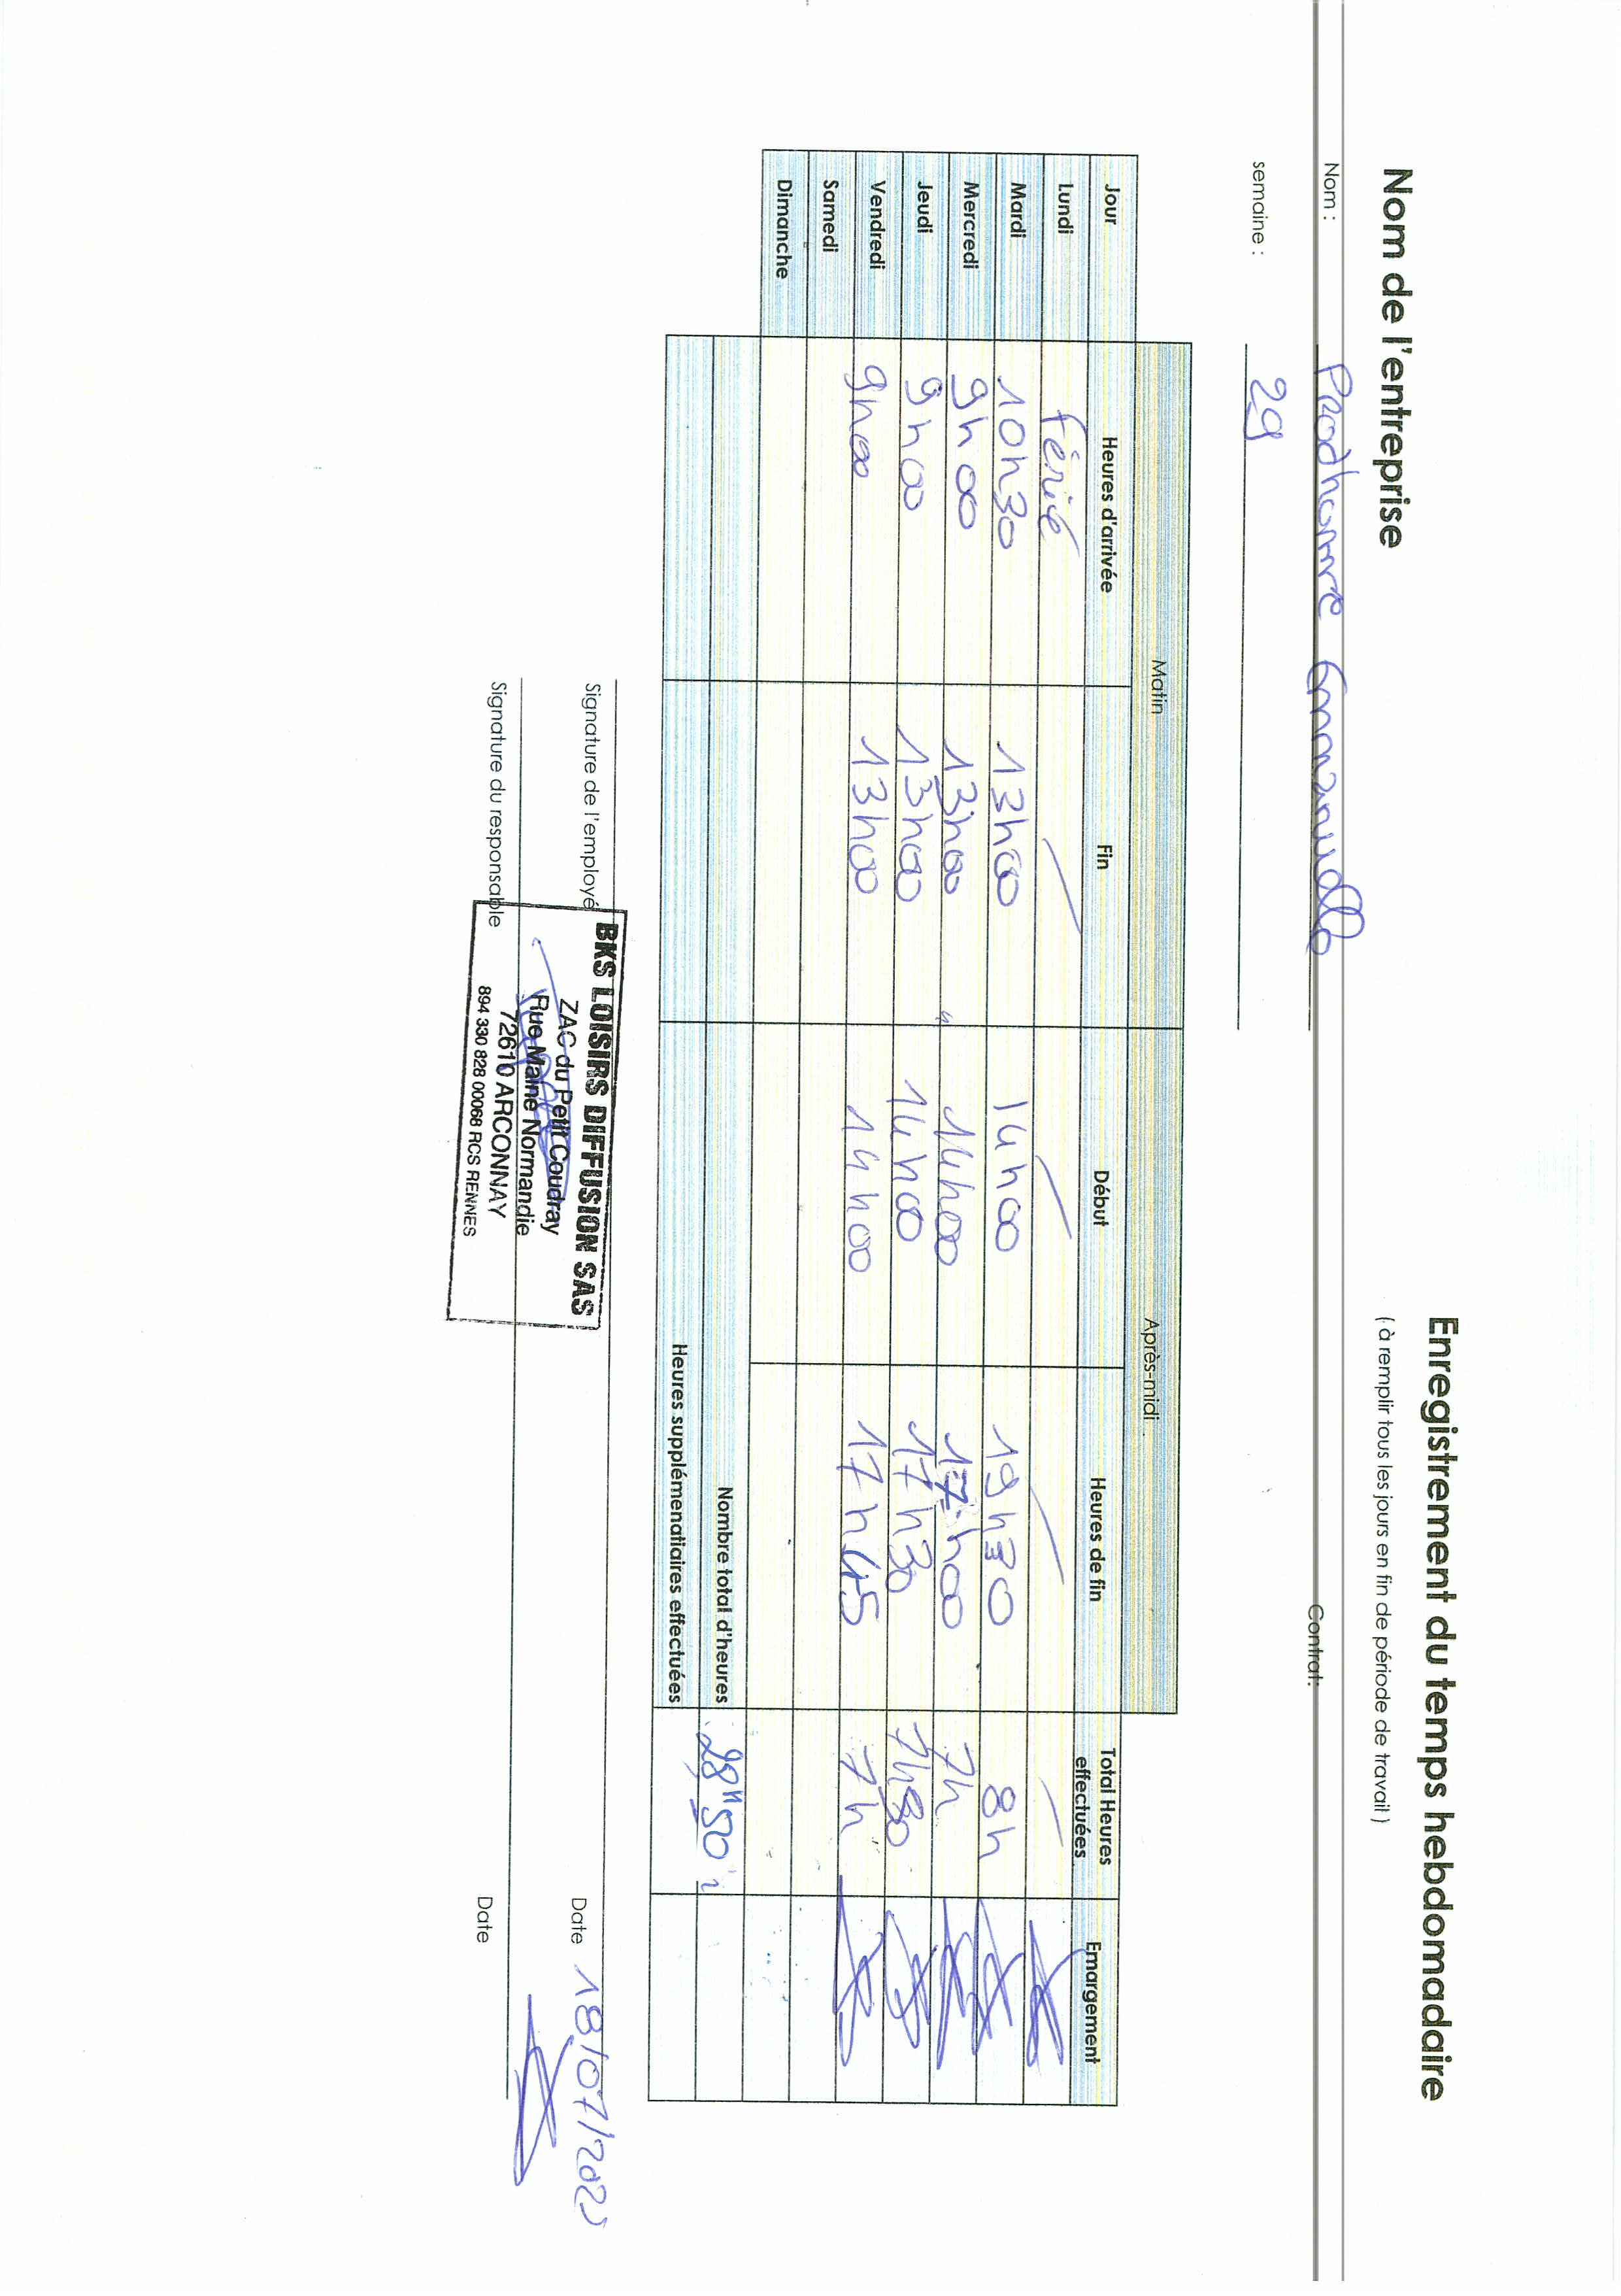 Enregistrement du temps hebdomadaire
Nom de l'entreprise
( à remplir tous les jours en fin de période de travail )
Nom : Prodhomme Emmanuelle Contrat:
semaine : 29
Matin Après-midi
Jour Heures d'arrivée Fin Début Heures de fin Total Heures effectuées Emargement
Lundi férié
Mardi 10h30 13h00 14h00 19h30 8h
Mercredi 9h00 13h00 14h00 17h00 7h
Jeudi 9h00 13h00 14h00 17h30 7h30
Vendredi 9h00 13h00 14h00 17h45 7h
Samedi
Dimanche
Nombre total d'heures 28h50
Heures supplémenatiaires effectuées
Signature de l'employé Date 18/07/2025
Signature du responsable Date
BKS LOISIRS DIFFUSION SAS
ZAC du Petit Coudray
Rue Maine Normandie
72610 ARCONNAY
894 330 828 00068 RCS RENNES